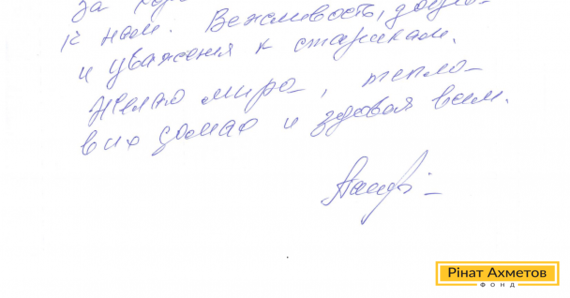 за
к нам. Вежливость,
и уважения к старикам.
Желаю мира, тепло-
в их домах и здовая всем.
Рінат Ахметов
ФОНД